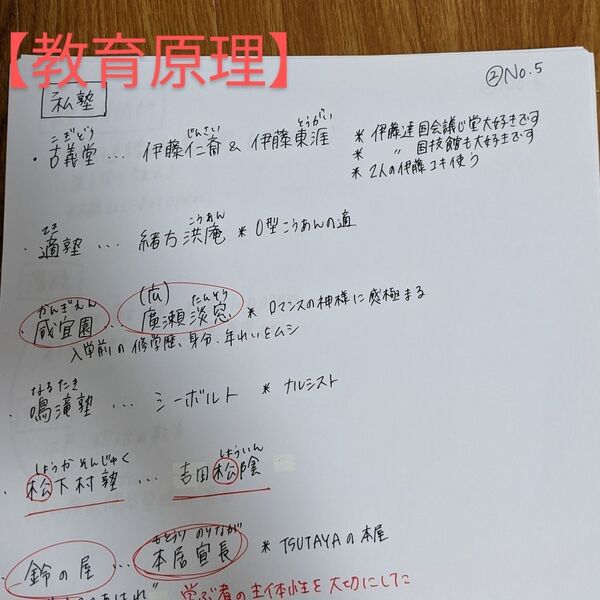 【教育原理】
②No.5
私塾
こぎどう じんさい とうがい
・古義堂…伊藤仁斎&伊藤東涯 ＊伊藤達国会議じ堂大好きです
＊ 〃 国技館も大好きです
＊2人の伊藤コキ使う
てき こうあん
・適塾…緒方洪庵 ＊O型こうあんの適
かんぎえん (広) たんそう
・咸宜園…廣瀬淡窓 ＊ロマンスの神様に感極まる
入学前の修学歴、身分、年れいをムシ
なるたき
・鳴滝塾…シーボルト ＊ナルシスト
しょうかそんじゅく しょういん
・松下村塾…吉田松陰
もとおり のりなが
・鈴の屋…本居宣長 ＊TSUTAYAの本屋
あはれ" 学ぶ者の主体性を大切にした